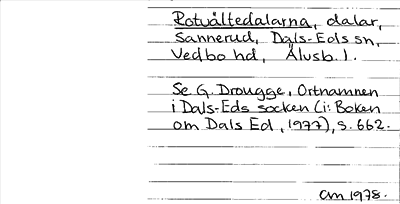 Rotvältedalarna, dalar,
Sannerud, Dals-Eds sn,
Vedbo hd, Älvsb. l.
Se G. Drougge, Ortnamnen
i Dals-Eds socken (i: Boken
om Dals Ed, 1977), s. 662.
CM 1978.